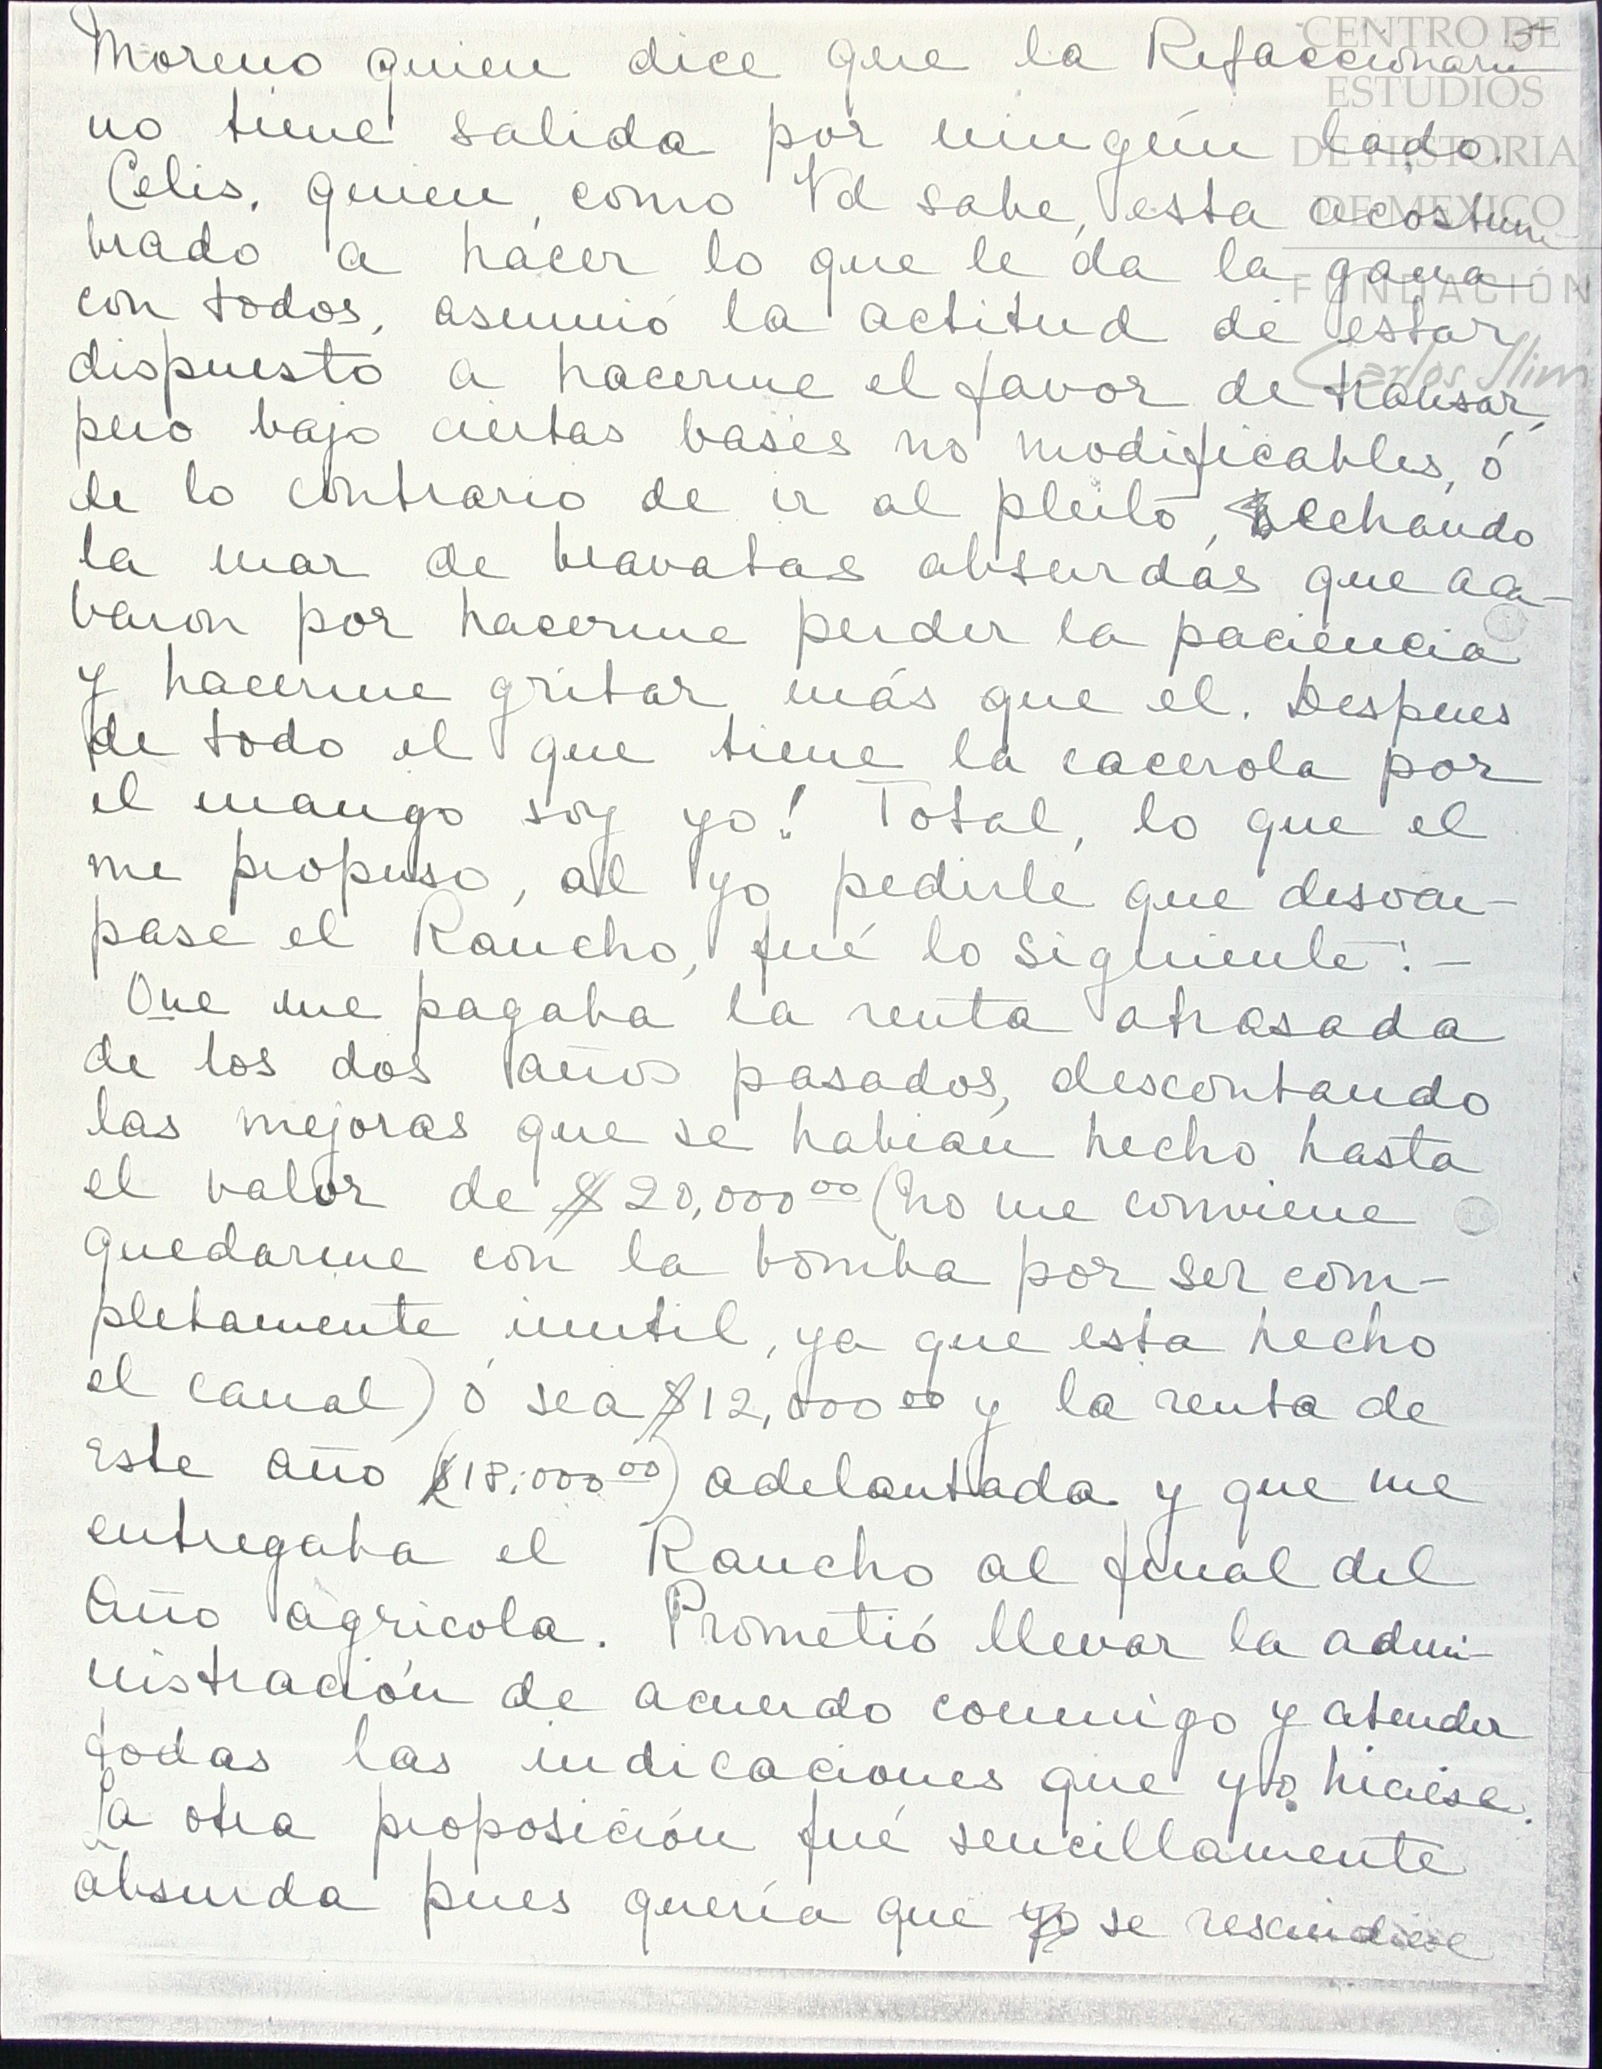 5
Moreno quien dice que la Refaccionaria
no tiene salida por ningún lado.
Celis, quien, como Vd sabe, esta acostum
brado a hacer lo que le da la gana
con todos, asumió la actitud de estar
dispuesto a hacerme el favor de transar,
pero bajo ciertas bases no modificables, ó
de lo contrario de ir al pleito, echando
la mar de bravatas absurdas que aca-
baron por hacerme perder la paciencia
y hacerme gritar más que el. Despues
de todo el que tiene la cacerola por
el mango soy yo! Total, lo que el
me propuso, al yo pedirle que desocu-
pase el Rancho, fué lo siguiente:-
Que me pagaba la renta atrasada
de los dos años pasados, descontando
las mejoras que se habian hecho hasta
el valor de $20,000.00 (no me conviene
quedarme con la bomba por ser com-
pletamente inutil, ya que esta hecho
el canal) ó sea $12,000.00 y la renta de
este año ($18,000.00) adelantada y que me
entregaba el Rancho al final del
año agricola. Prometió llevar la admi-
nistración de acuerdo conmigo y atender
todas las indicaciones que yo hiciese.
La otra proposición fué sencillamente
absurda pues quería que yo se rescindiese
CENTRO DE
ESTUDIOS
DE HISTORIA
DE MEXICO
FUNDACIÓN
Carlos Slim